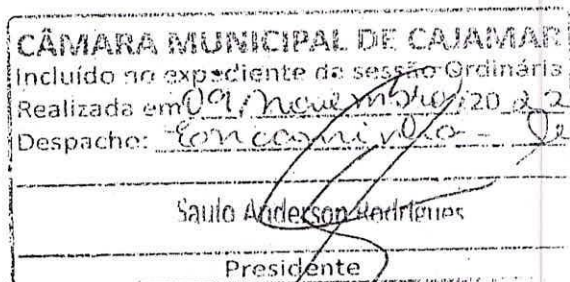 CÂMARA MUNICIPAL DE CAJAMAR
Incluído no expediente da sessão Ordinária
Realizada em 09/novembro/20 22
Despacho: Encaminhe-se
Saulo Anderson Rodrigues
Presidente